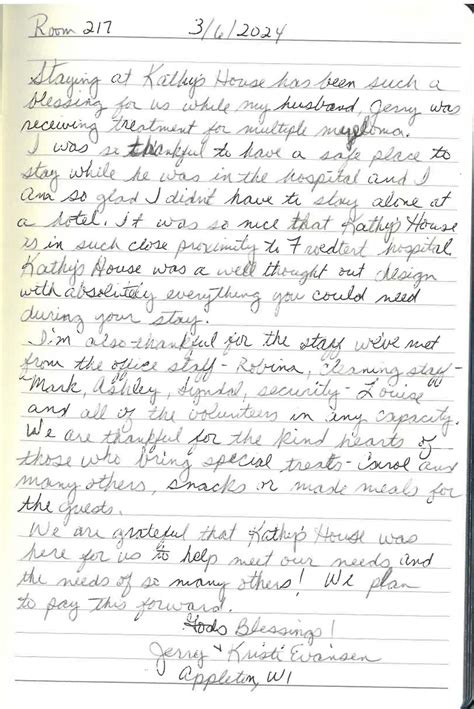 Room 217 3/6/2024
Staying at Kathy's House has been such a
blessing for us while my husband, Jerry was
receiving treatment for multiple myeloma.
I was so thankful to have a safe place to
stay while he was in the hospital and I
am so glad I didn't have to stay alone at
a hotel. It was so nice that Kathy's House
is in such close proximity to Froedtert hospital.
Kathy's House was a well thought out design
with absolutely everything you could need
during your stay.
I'm also thankful for the staff we've met
from the office staff - Robina, cleaning staff -
Mark, Ashley, security - Louise
and all of the volunteers in any capacity.
We are thankful for the kind hearts of
those who bring special treats - Carol and
many others, snacks or made meals for
the guests.
We are grateful that Kathy's House was
here for us to help meet our needs and
the needs of so many others! We plan
to pay this forward.
Gods Blessings!
Jerry & Kristi Evansen
Appleton, WI